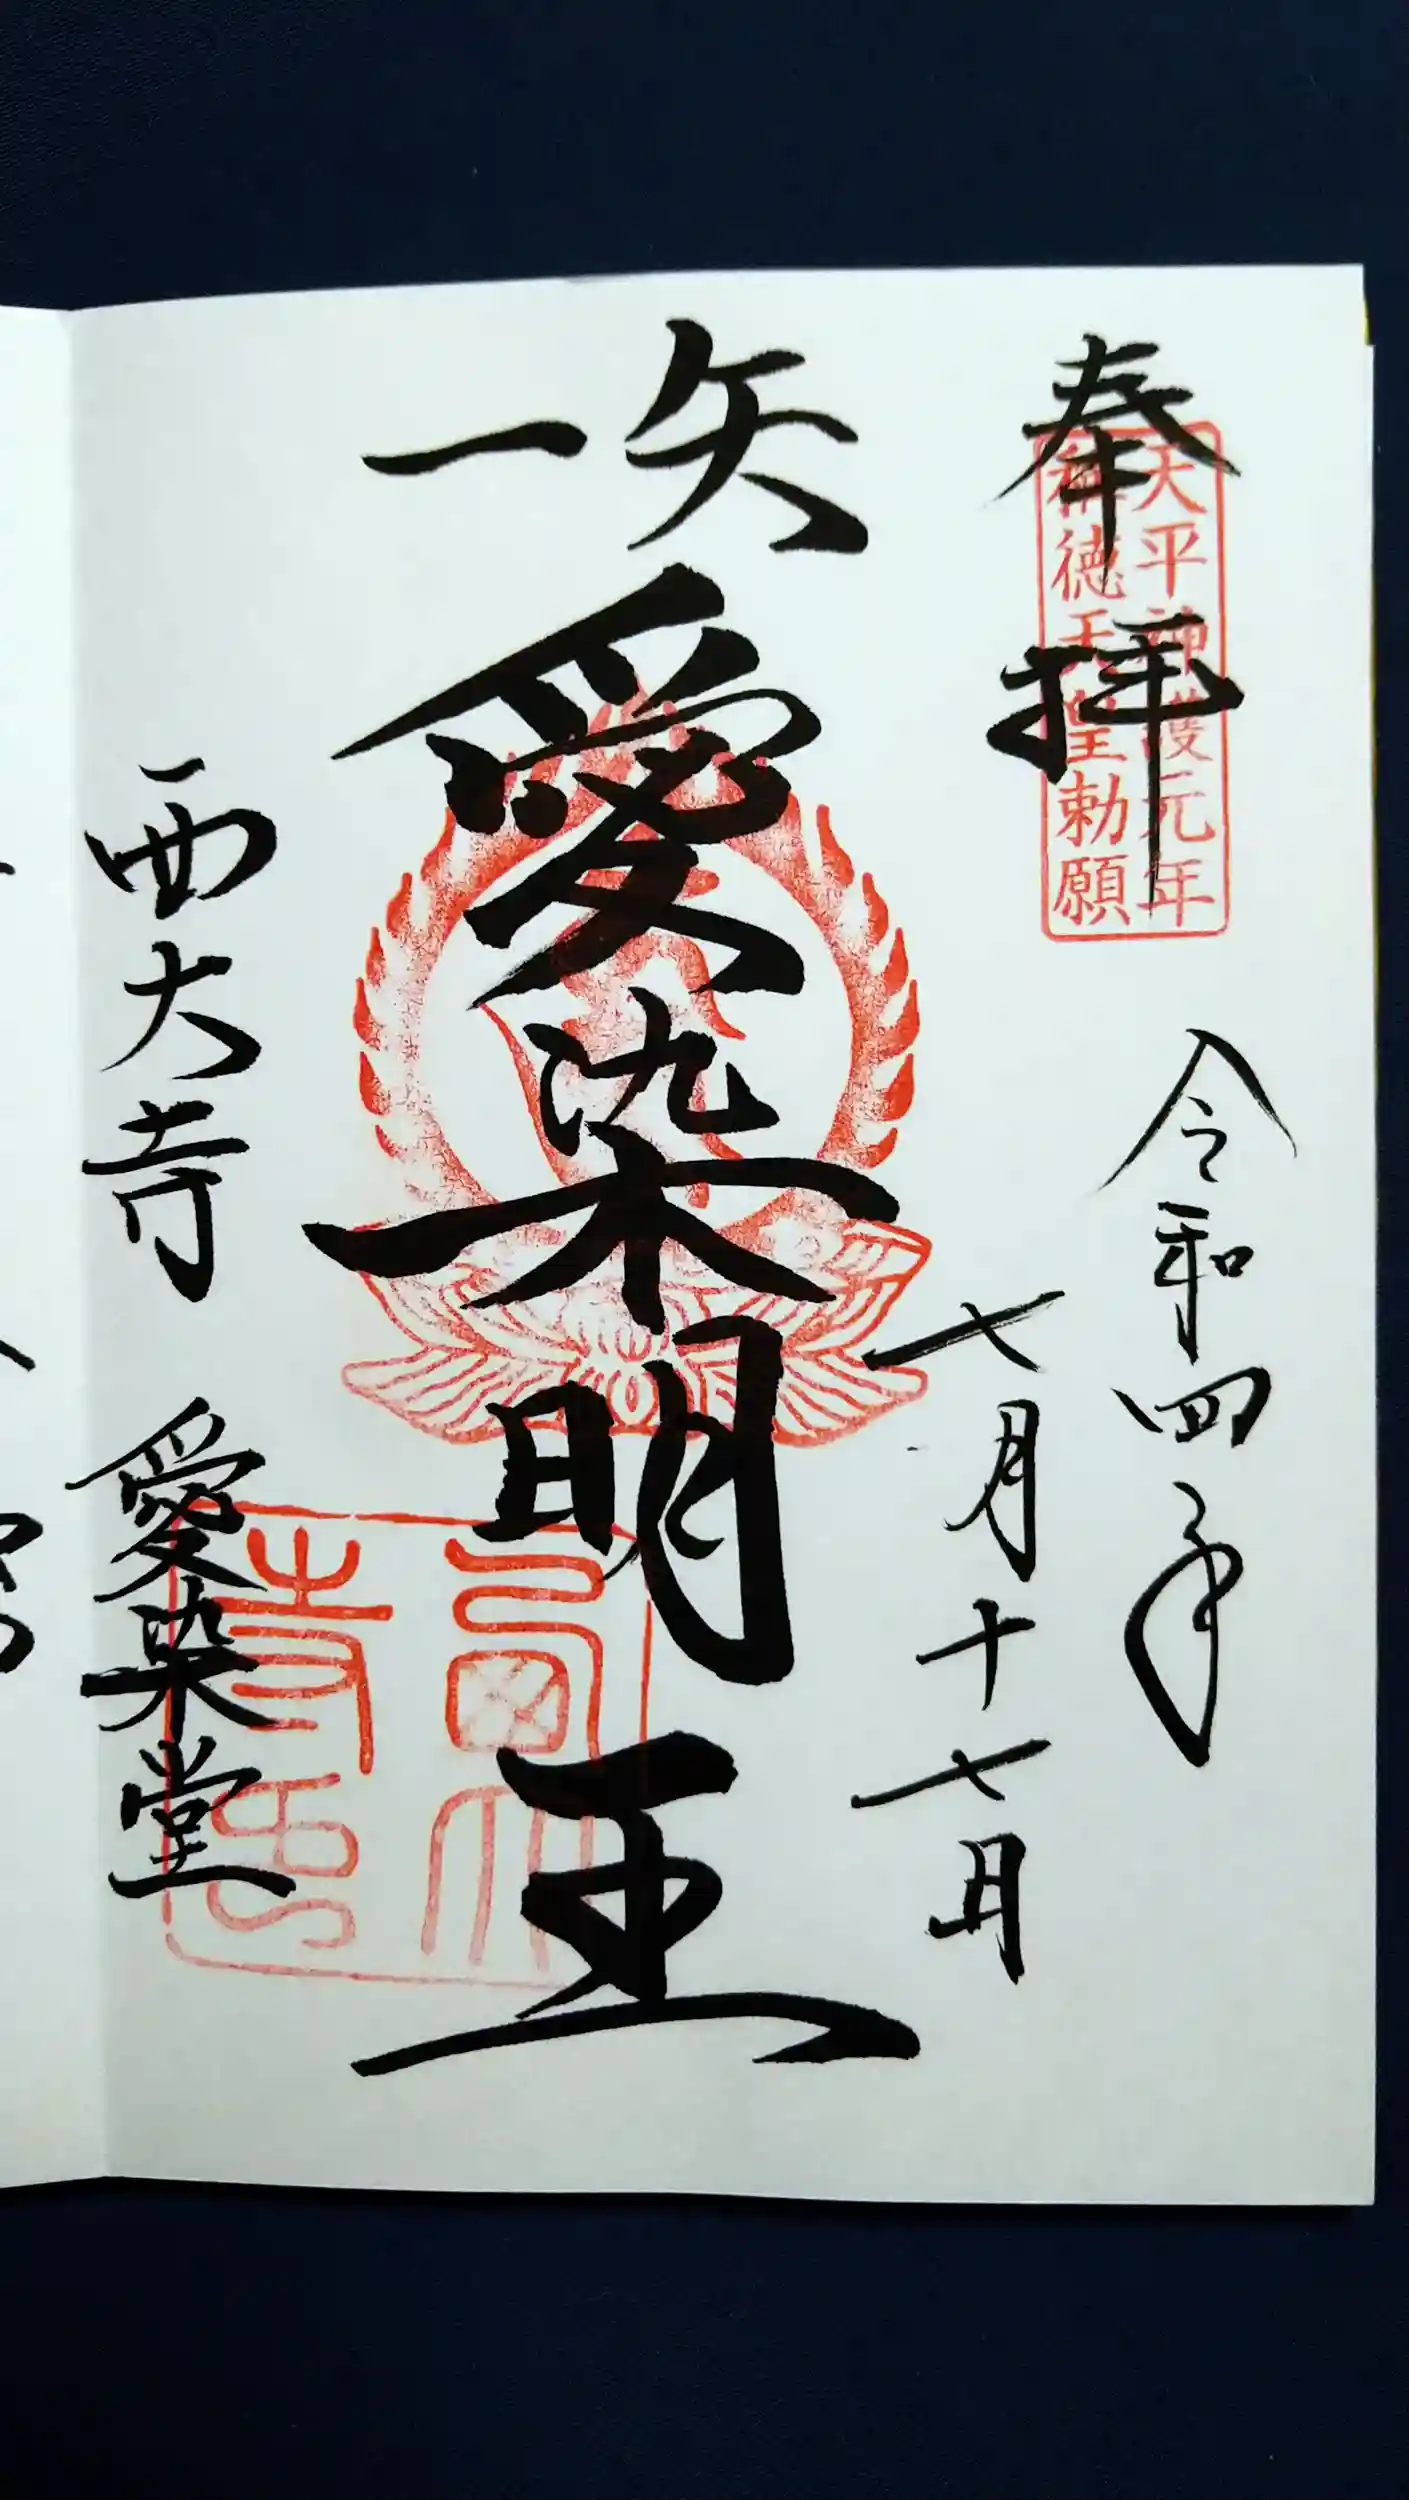 奉拝
天平神護元年
稱徳天皇勅願
令和四年
七月十七日
一矢
愛染明王
西大寺 愛染堂
西大
寺印